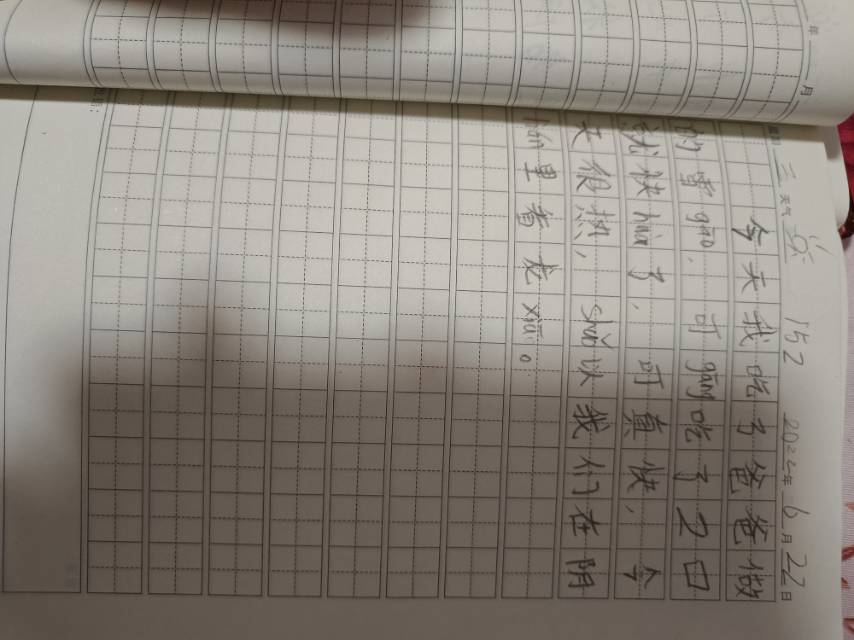 年 月
星期三 天气 152 2022年6月22日
今天我吃了爸爸做
的雪gāo，可gāng吃了2口
就快huà了，可真快，今
天很热，shuǒ以我们在阴
里看龙xiā。